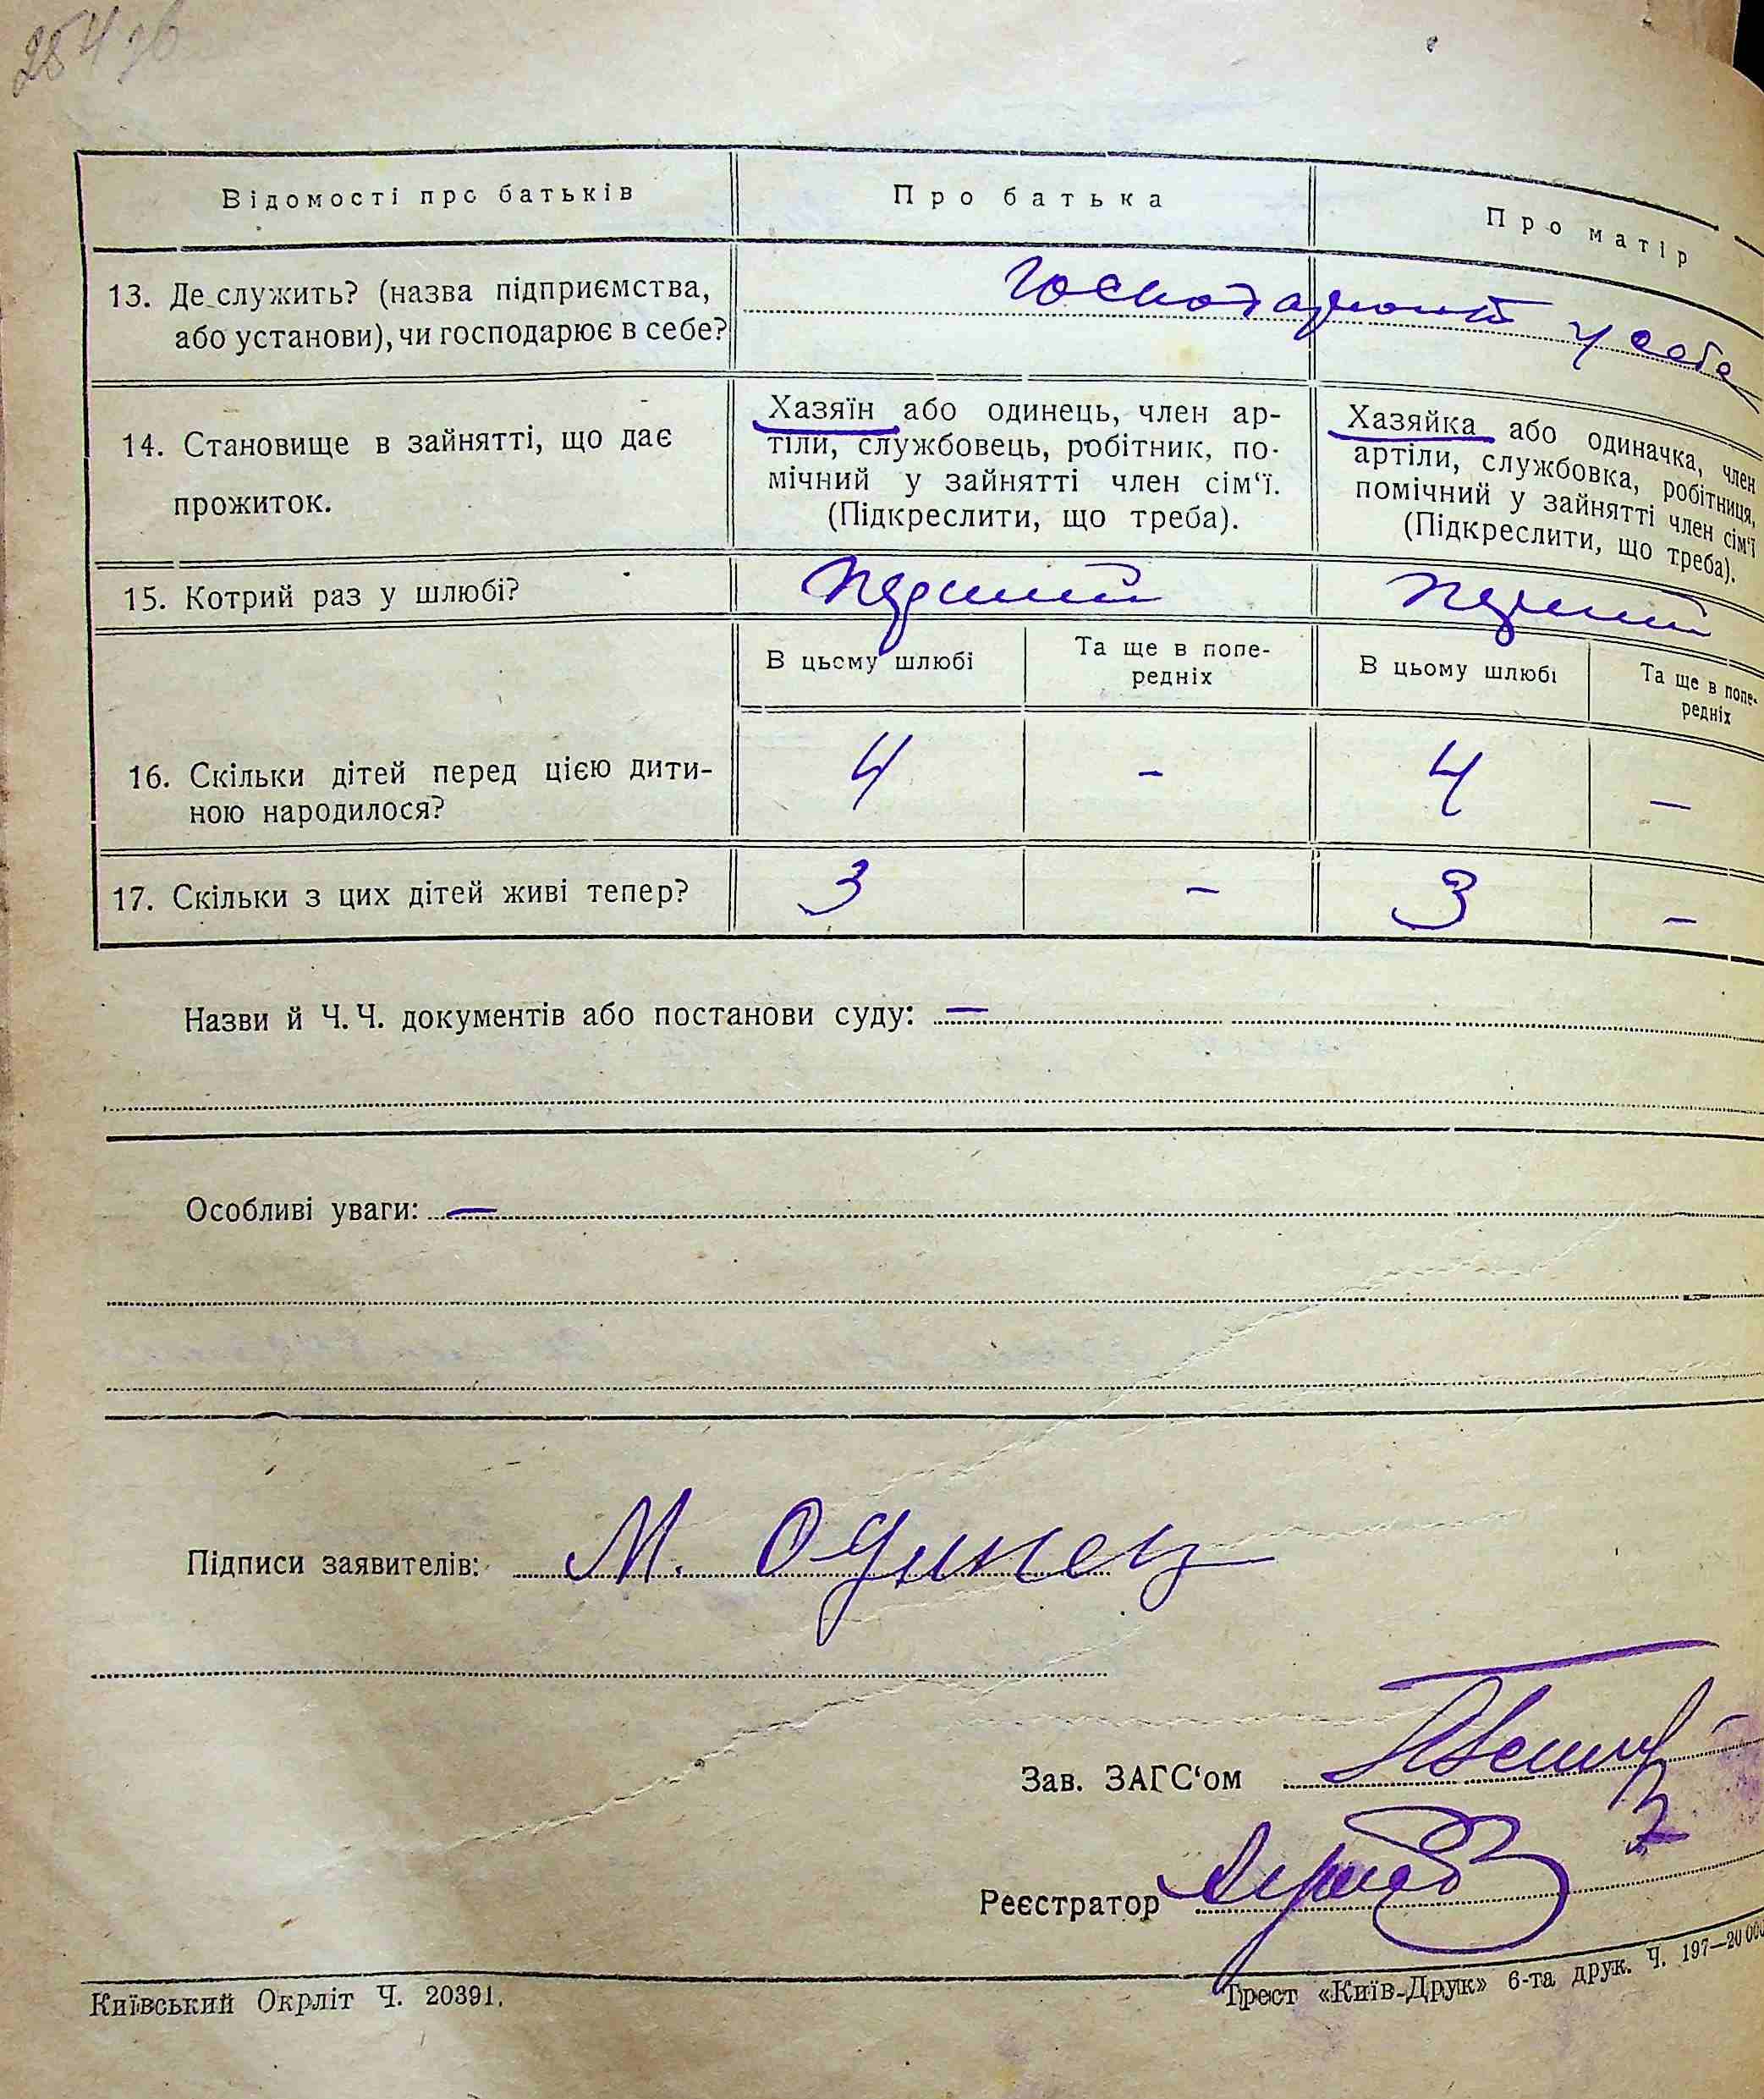 254 зв
Відомості про батьків
Про батька
Про матір
13. Де служить? (назва підприємства,
або установи), чи господарює в себе?
господарюють у себе
14. Становище в зайнятті, що дає
прожиток.
Хазяїн або одинець, член ар-
тіли, службовець, робітник, по-
мічний у зайнятті член сім‘ї.
(Підкреслити, що треба).
Хазяйка або одиначка, член
артіли, службовка, робітниця,
помічний у зайнятті член сім‘ї
(Підкреслити, що треба).
15. Котрий раз у шлюбі?
перший
перший
В цьому шлюбі
Та ще в попе-
редніх
В цьому шлюбі
Та ще в попе-
редніх
16. Скільки дітей перед цією дити-
ною народилося?
4 - 4 —
17. Скільки з цих дітей живі тепер?
3 - 3 —
Назви й Ч. Ч. документів або постанови суду: —
Особливі уваги: —
Підписи заявителів: М. Одинец
Зав. ЗАГС‘ом
Реєстратор
Київський Окрліт Ч. 20391.
Трест «Київ-Друк» 6-та друк. Ч. 197—20000